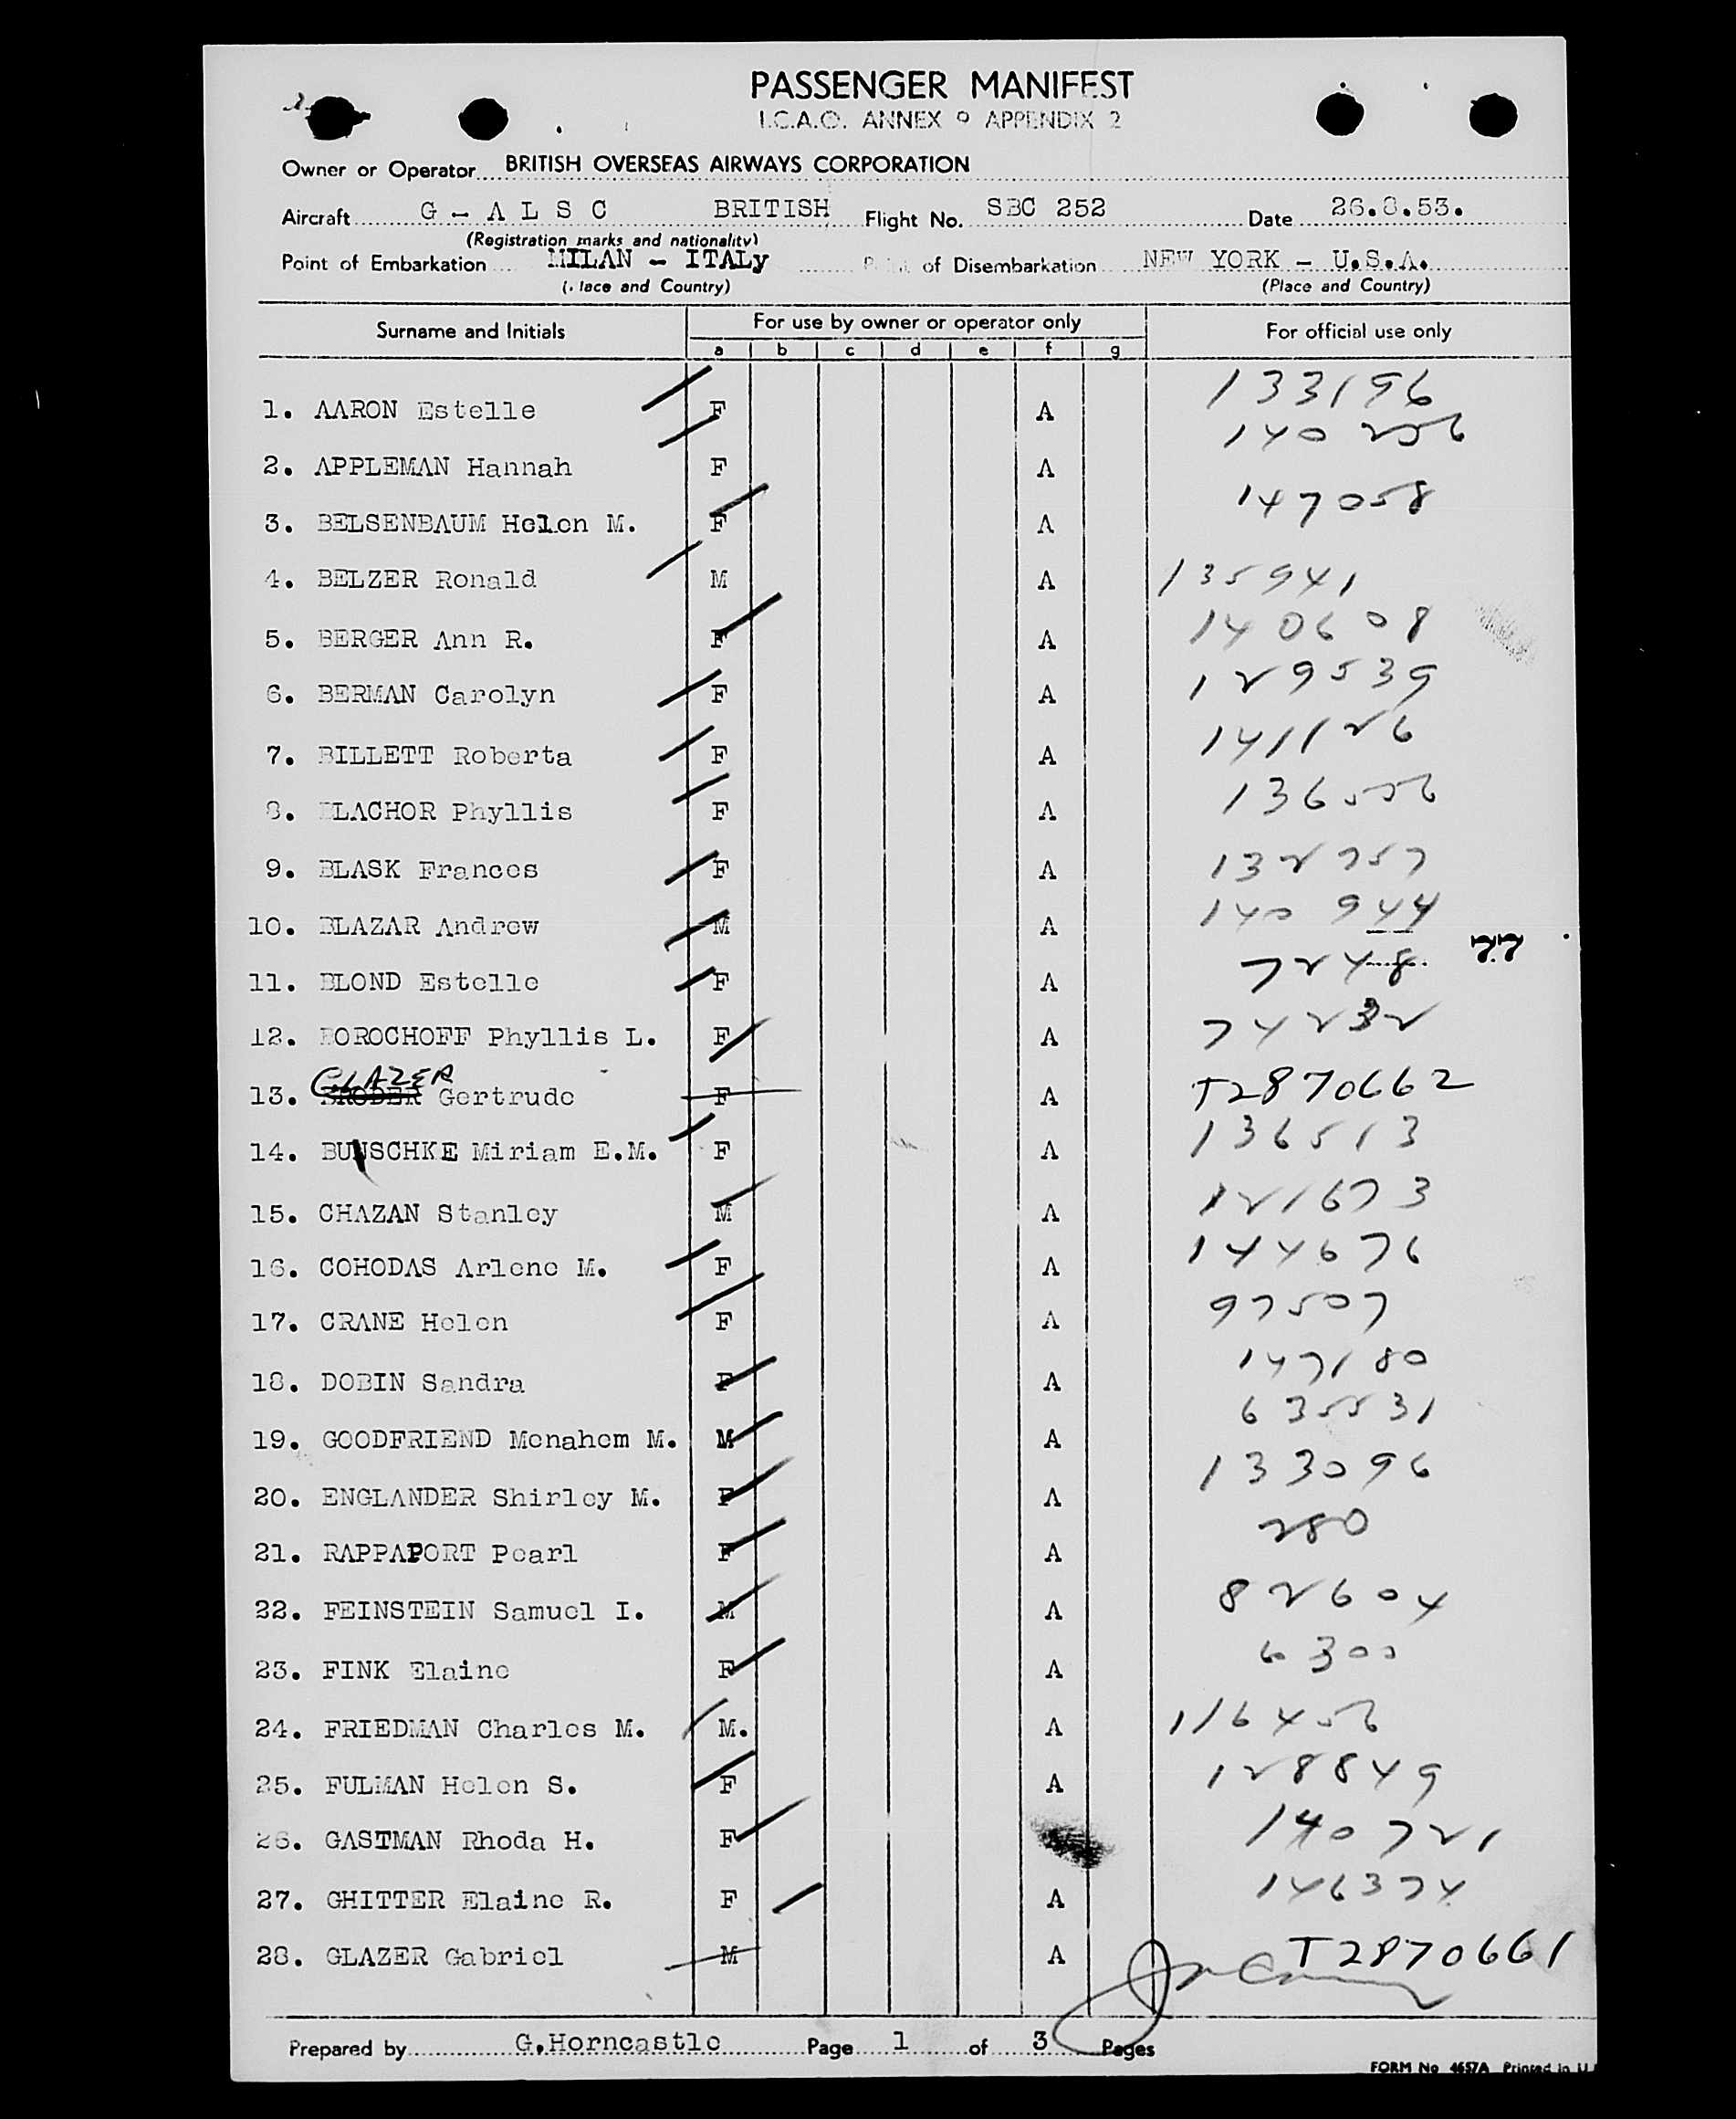 PASSENGER MANIFEST
I.C.A.O. ANNEX 9 APPENDIX 2
Owner or Operator BRITISH OVERSEAS AIRWAYS CORPORATION
Aircraft G - A L S C BRITISH Flight No. SBC 252 Date 26.8.53.
(Registration marks and nationality)
Point of Embarkation MILAN - ITALy Point of Disembarkation NEW YORK - U.S.A.
(Place and Country) (Place and Country)
Surname and Initials For use by owner or operator only For official use only
a b c d e f g
1. AARON Estelle F A 133196
2. APPLEMAN Hannah F A 140256
3. BELSENBAUM Helen M. F A 147058
4. BELZER Ronald M A 135941
5. BERGER Ann R. F A 140608
6. BERMAN Carolyn F A 129539
7. BILLETT Roberta F A 141126
8. BLACHOR Phyllis F A 136556
9. BLASK Frances F A 132757
10. BLAZAR Andrew M A 140944
11. BLOND Estelle F A 7248 77
12. BOROCHOFF Phyllis L. F A 74232
GLAZER
13. BRODER Gertrude F A T2870662
14. BUNSCHKE Miriam E.M. F A 136513
15. CHAZAN Stanley M A 121673
16. COHODAS Arlene M. F A 144676
17. CRANE Helen F A 97507
18. DOBIN Sandra F A 147180
19. GOODFRIEND Menahem M. M A 635531
20. ENGLANDER Shirley M. F A 133096
21. RAPPAPORT Pearl F A 280
22. FEINSTEIN Samuel I. M A 82604
23. FINK Elaine F A 6300
24. FRIEDMAN Charles M. M. A 116456
25. FULMAN Helen S. F A 128849
26. GASTMAN Rhoda H. F 140721
27. GHITTER Elaine R. F A 146374
28. GLAZER Gabriel M A T2870661
Prepared by G.Horncastle Page 1 of 3 Pages
FORM No 4657A Printed in U